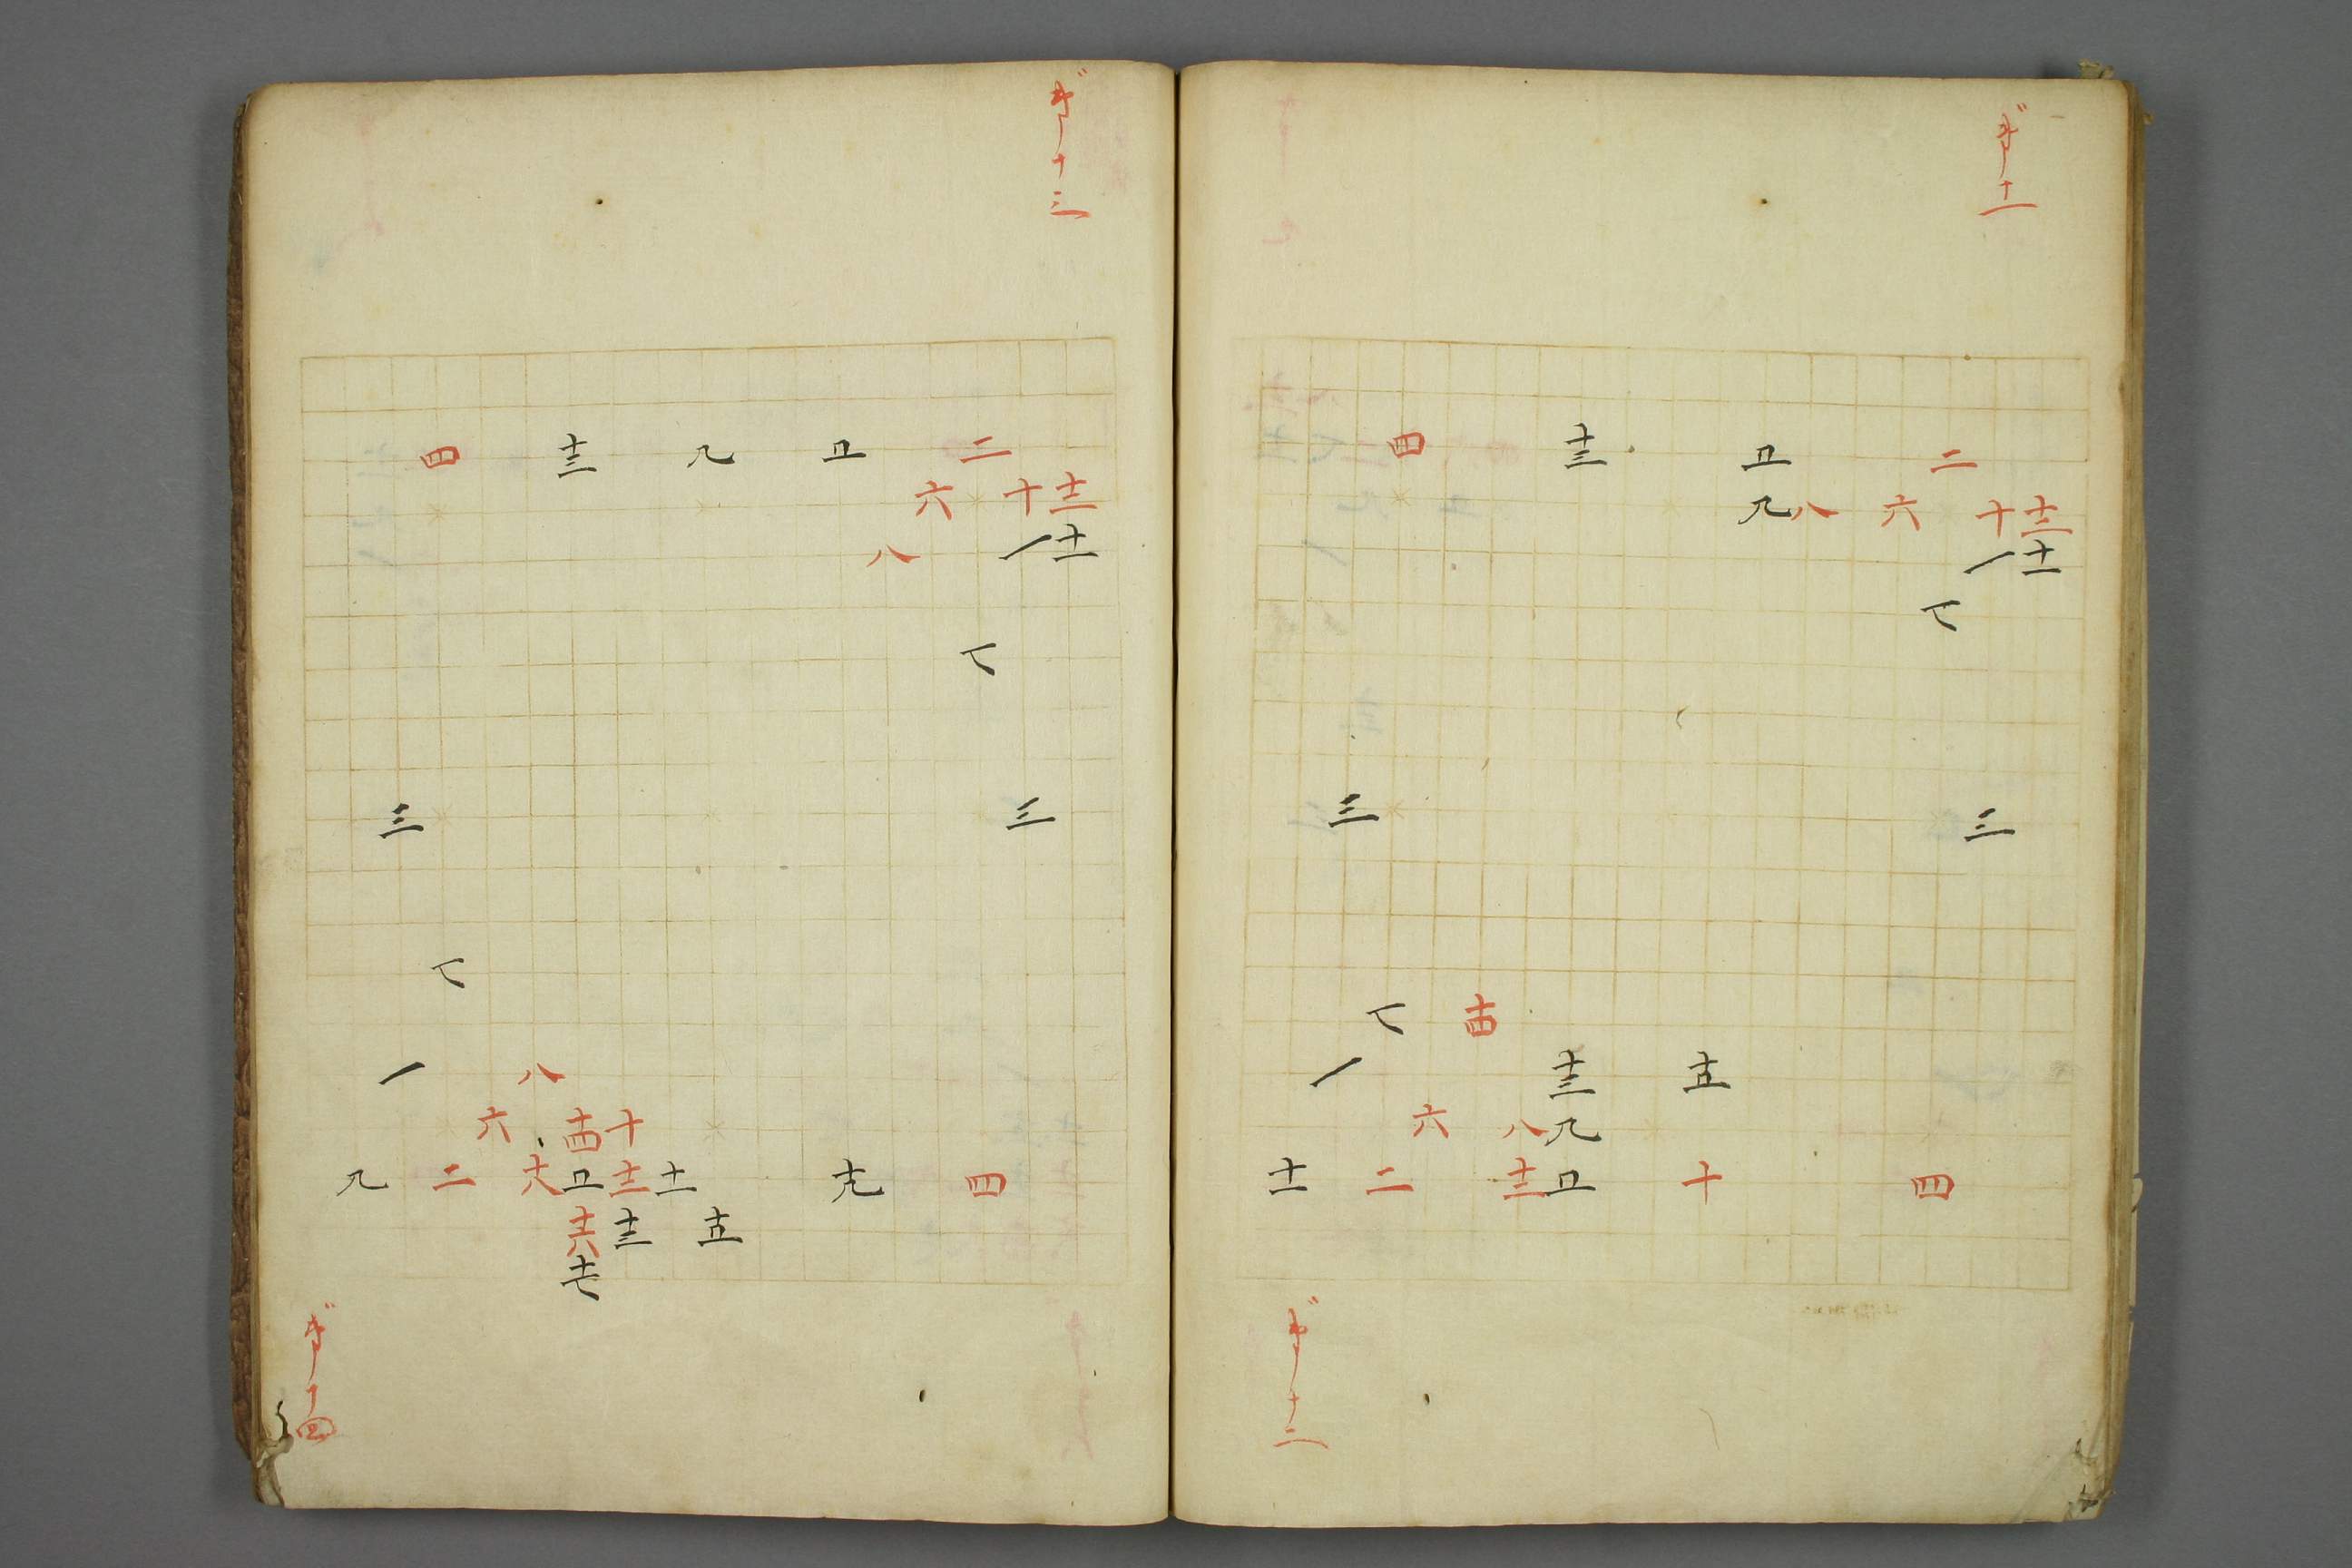 第十一
四 十三 五 二
九 八 六 十 十二
一 十一
七
三 三
七 十四
一 十三 十五
六 八 九
十一 二 十二 五 十 四
第十二
第十三
四 十三 九 五 二
六 十 十二
八 一 十一
七
三 三
七
一 八
六 十四 十
九 二 十八 五 十二 十一 十九 四
十六 十三 十五
十七
第十四